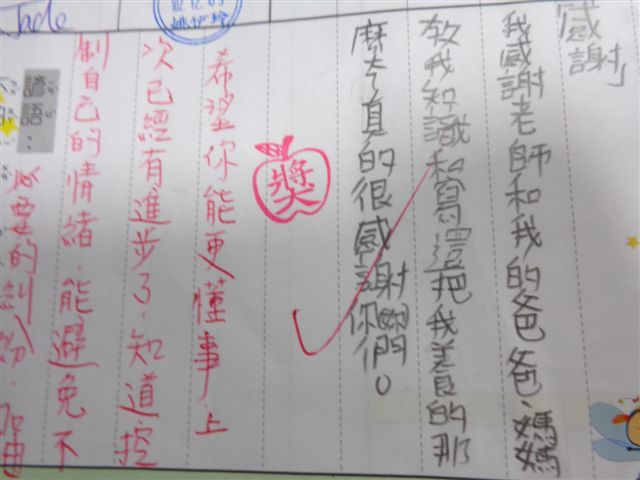 Jade
感謝」
我感謝老師和我的爸爸、媽媽
教我知識和寫還把我養的那
麼大真的很感謝你們。
獎
希望你能更懂事.上
次已經有進步了.知道控
制自己的情緒.能避免不
諺語：
必要的糾紛.加油